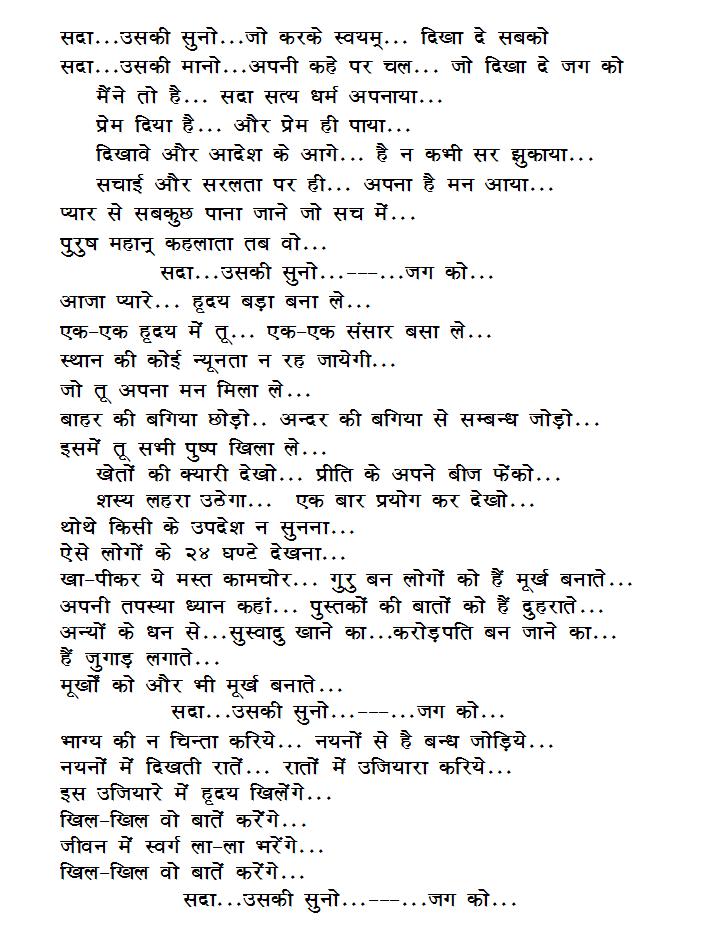 सदा...उसकी सुनो...जो करके स्वयम्... दिखा दे सबको
सदा...उसकी मानो...अपनी कहे पर चल... जो दिखा दे जग को
मैंने तो है... सदा सत्य धर्म अपनाया...
प्रेम दिया है... और प्रेम ही पाया...
दिखावे और आदेश के आगे... है न कभी सर झुकाया...
सचाई और सरलता पर ही... अपना है मन आया...
प्यार से सबकुछ पाना जाने जो सच में...
पुरुष महान् कहलाता तब वो...
सदा...उसकी सुनो...---...जग को...
आजा प्यारे... हृदय बड़ा बना ले...
एक-एक हृदय में तू... एक-एक संसार बसा ले...
स्थान की कोई न्यूनता न रह जायेगी...
जो तू अपना मन मिला ले...
बाहर की बगिया छोड़ो.. अन्दर की बगिया से सम्बन्ध जोड़ो...
इसमें तू सभी पुष्प खिला ले...
खेतों की क्यारी देखो... प्रीति के अपने बीज फेंको...
शस्य लहरा उठेगा... एक बार प्रयोग कर देखो...
थोथे किसी के उपदेश न सुनना...
ऐसे लोगों के २४ घण्टे देखना...
खा-पीकर ये मस्त कामचोर... गुरु बन लोगों को हैं मूर्ख बनाते...
अपनी तपस्या ध्यान कहां... पुस्तकों की बातों को हैं दुहराते...
अन्यों के धन से...सुस्वादु खाने का...करोड़पति बन जाने का...
हैं जुगाड़ लगाते...
मूर्खों को और भी मूर्ख बनाते...
सदा...उसकी सुनो...---...जग को...
भाग्य की न चिन्ता करिये... नयनों से है बन्ध जोड़िये...
नयनों में दिखती रातें... रातों में उजियारा करिये...
इस उजियारे में हृदय खिलेंगे...
खिल-खिल वो बातें करेंगे...
जीवन में स्वर्ग ला-ला भरेंगे...
खिल-खिल वो बातें करेंगे...
सदा...उसकी सुनो...---...जग को...